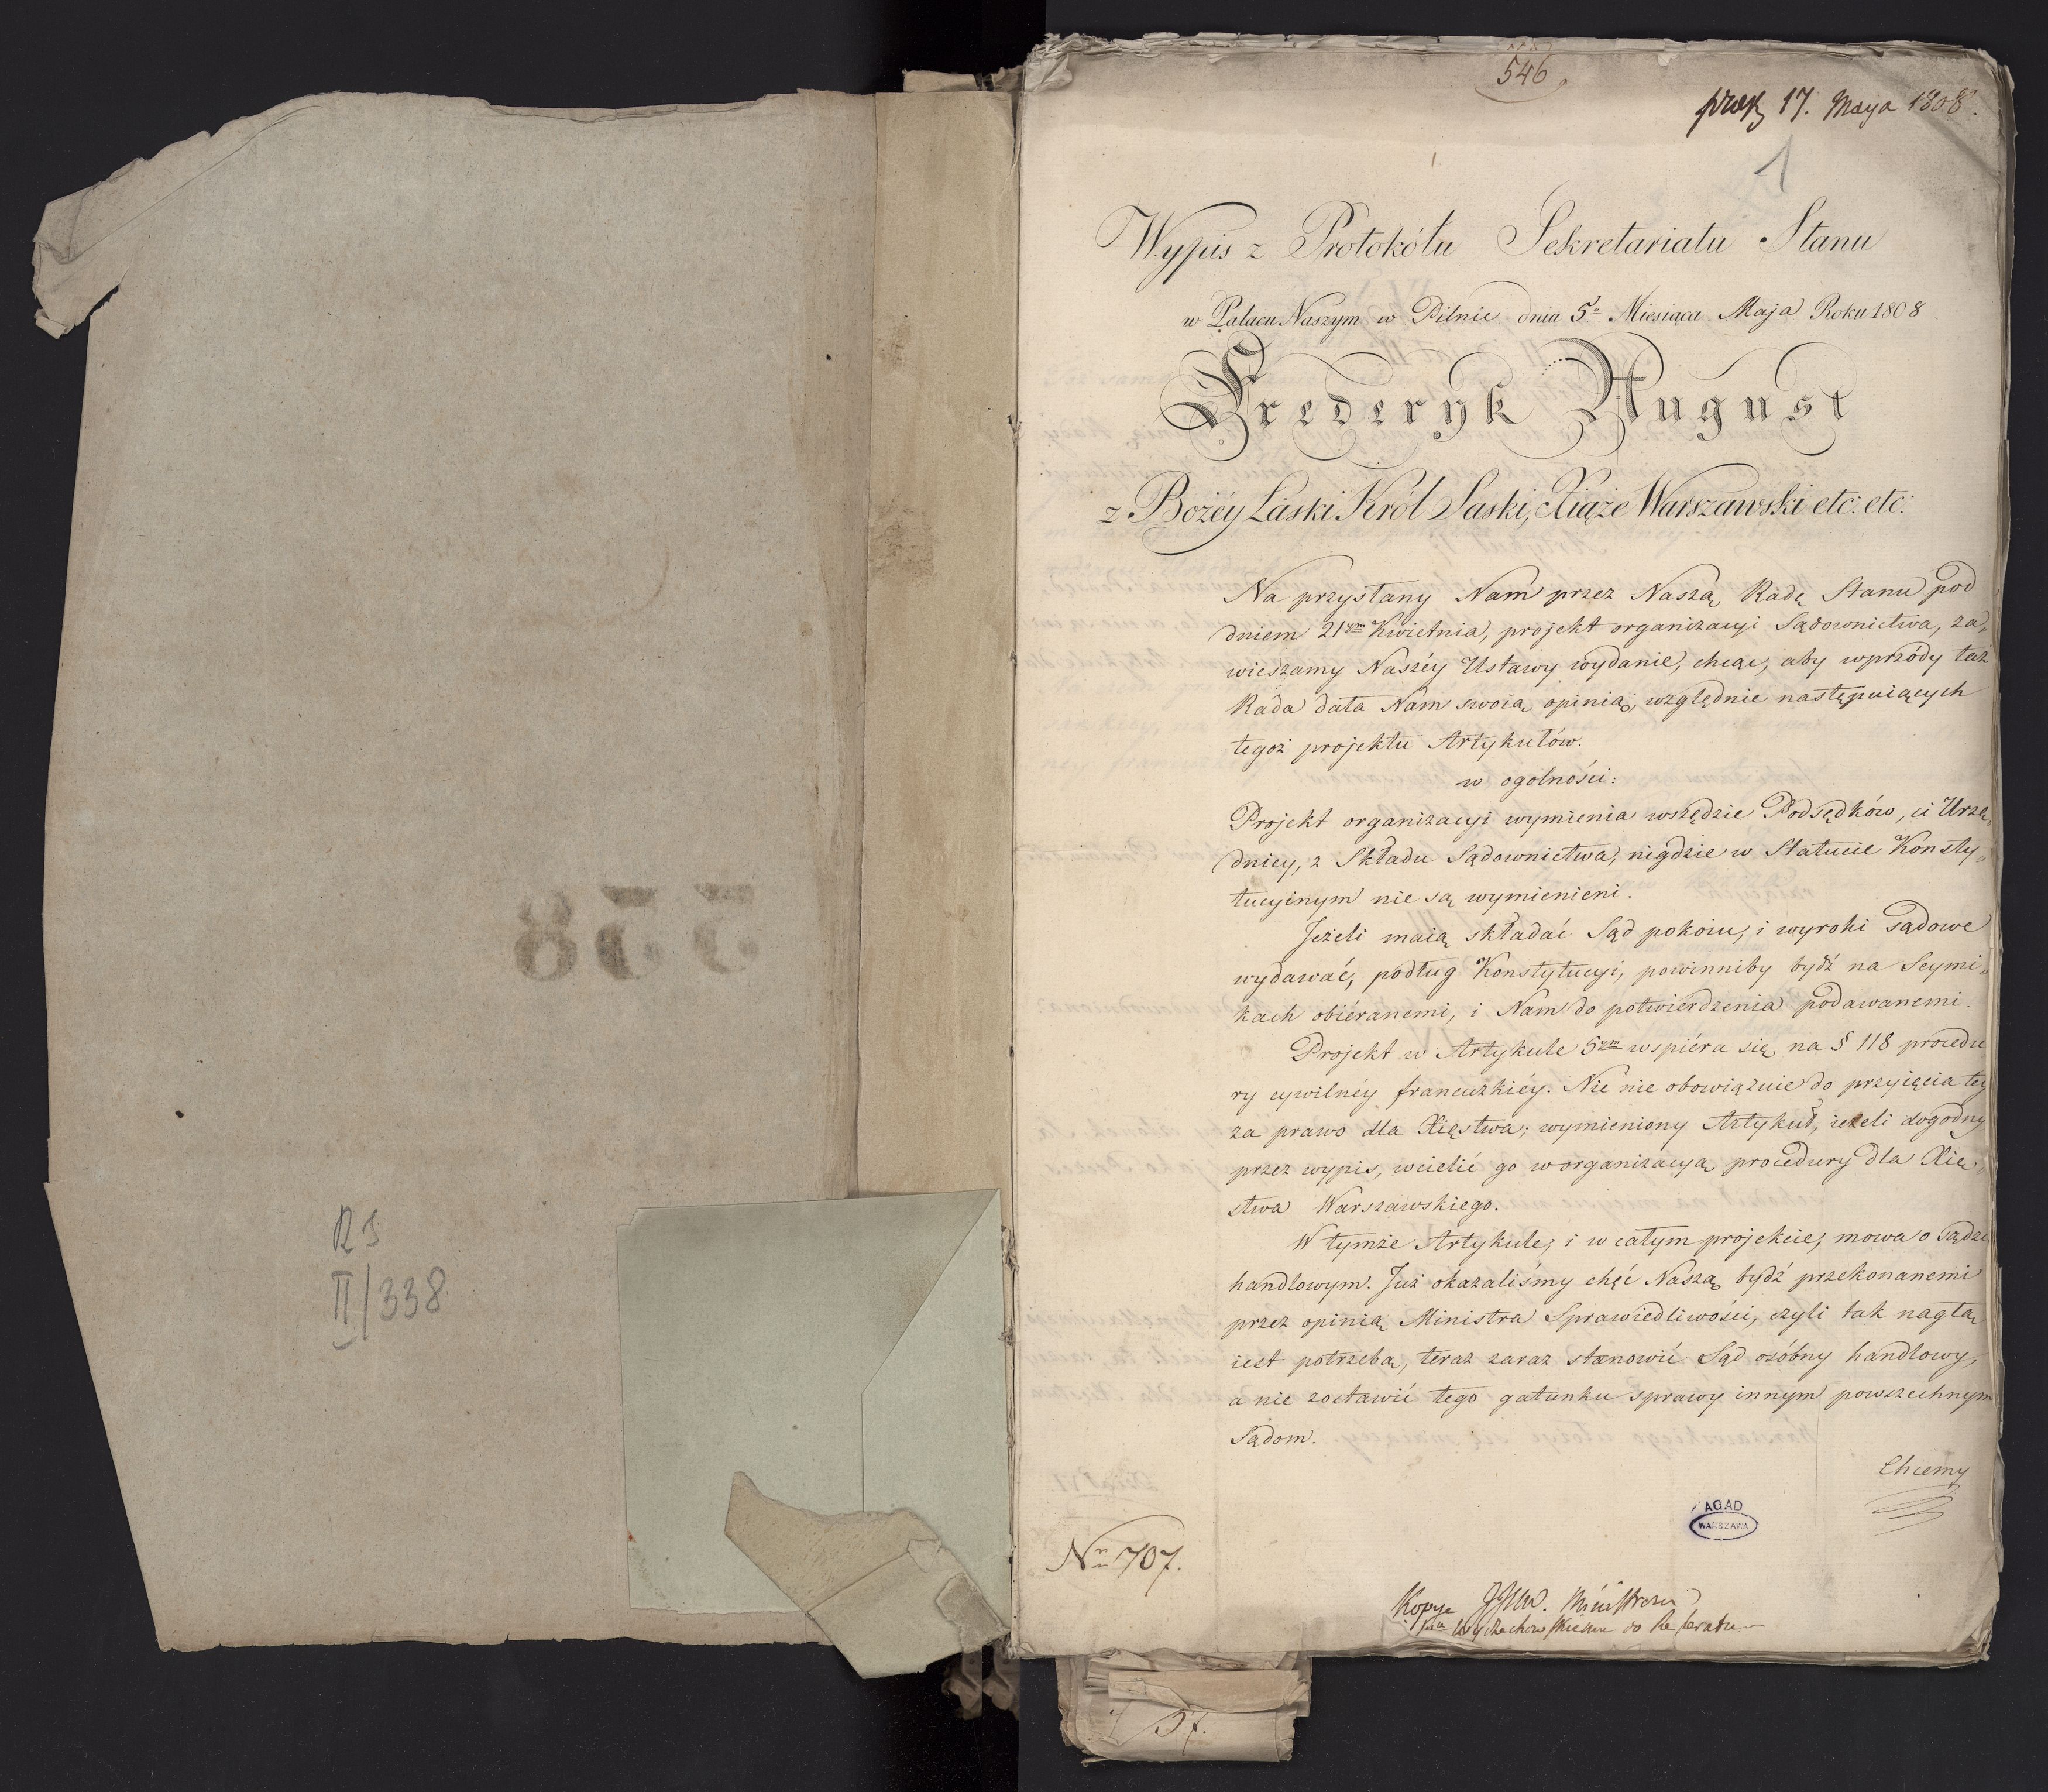 338
RS
II/338
546
17. Maya 1808.
1
Wypis z Protokółu Sekretariatu Stanu
w Pałacu Naszym w Pilnic dnia 5º Miesiąca Maja Roku 1808
Frederyk August
z Bożéy Łaski Król Saski, Xiąże Warszawski etc: etc:
Na przysłany Nam przez Naszą Radę Stanu pod
dniem 21ym Kwietnia, projekt organizacyi Sądownictwa, za„
wieszamy Naszéy Ustawy wydanie, chcąc, aby wprzódy taż
Rada dała Nam swoią opinią, względnie następuiących
tegoż projektu Artykułów.
w ogolności:
Projekt organizacyi wymienia wszędzie Podsędków, ci Urzę„
dnicy, z Składu Sądownictwa, nigdzie w Statucie Konsty„
tucyinym nie są wymienieni.
Jeżeli maią składać Sąd pokoiu, i wyroki sądowe
wydawać, podług Konstytucyi, powinniby bydź na Seymi„
kach obiéranemi, i Nam do potwierdzenia podawanemi.
Projekt w Artykule 5ym wspiéra się na § 118 procedu
ry cywilnéy francuzkiéy. Nic nie obowiązuie do przyięcia tey
za prawo dla Xięstwa; wymieniony Artykuł, ieżeli dogodny
przez wypis, wcielić go w organizacyą procedury dla Xię„
stwa Warszawskiego.
W tymże Artykule, i w całym projekcie, mowa o sądzie
handlowym. Już okazaliśmy chęć Naszą bydź przekonanemi
przez opinią Ministra Sprawiedliwości, czyli tak nagła
iest potrzeba, teraz zaraz stanowić Sąd osóbny handlowy,
a nie zostawić tego gatunku sprawy innym powszechnym
Sądom.
Chcemy
AGAD
WARSZAWA
Nr 707.
Kopye Ministrem
Wyczechowskiemu do Referatu
57.